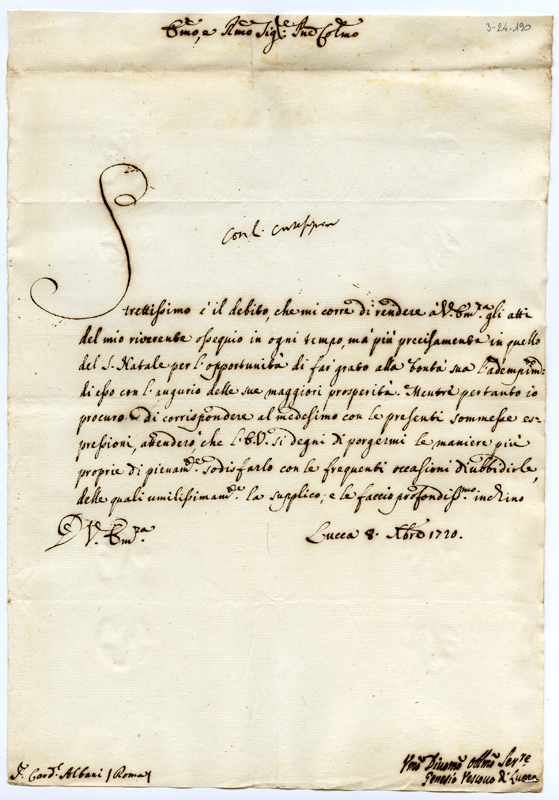 3-24-190
Em̃o, e Rmõ Sig.re Pnẽ Colmõ
Strettissimo è il debito, che mi corre di rendere à V. Em.za gli atti
del mio riverente ossequio in ogni tempo, mà più precisamente in quello
del S. Natale per l'opportunità di far grato alla bontà sua l'adempim.to
di esso con l'augurio delle sue maggiori prosperità. Mentre pertanto io
procuro di corrispondere al medesimo con le presenti sommesse es-
pressioni, attenderò che l'E.V. si degni di porgermi le maniere più
proprie di pienam.te sodisfarlo con le frequenti occasioni d'ubbidirla,
delle quali umilissimam.te la supplico; e le faccio profondiss.mo inchino
D V. Em.za
Lucca 8. Xbre 1720.
S.r Card.l Albani / Roma /
Vmõ Divomõ Obl̃mo Ser.re
Genesio Vescovo di Lucca